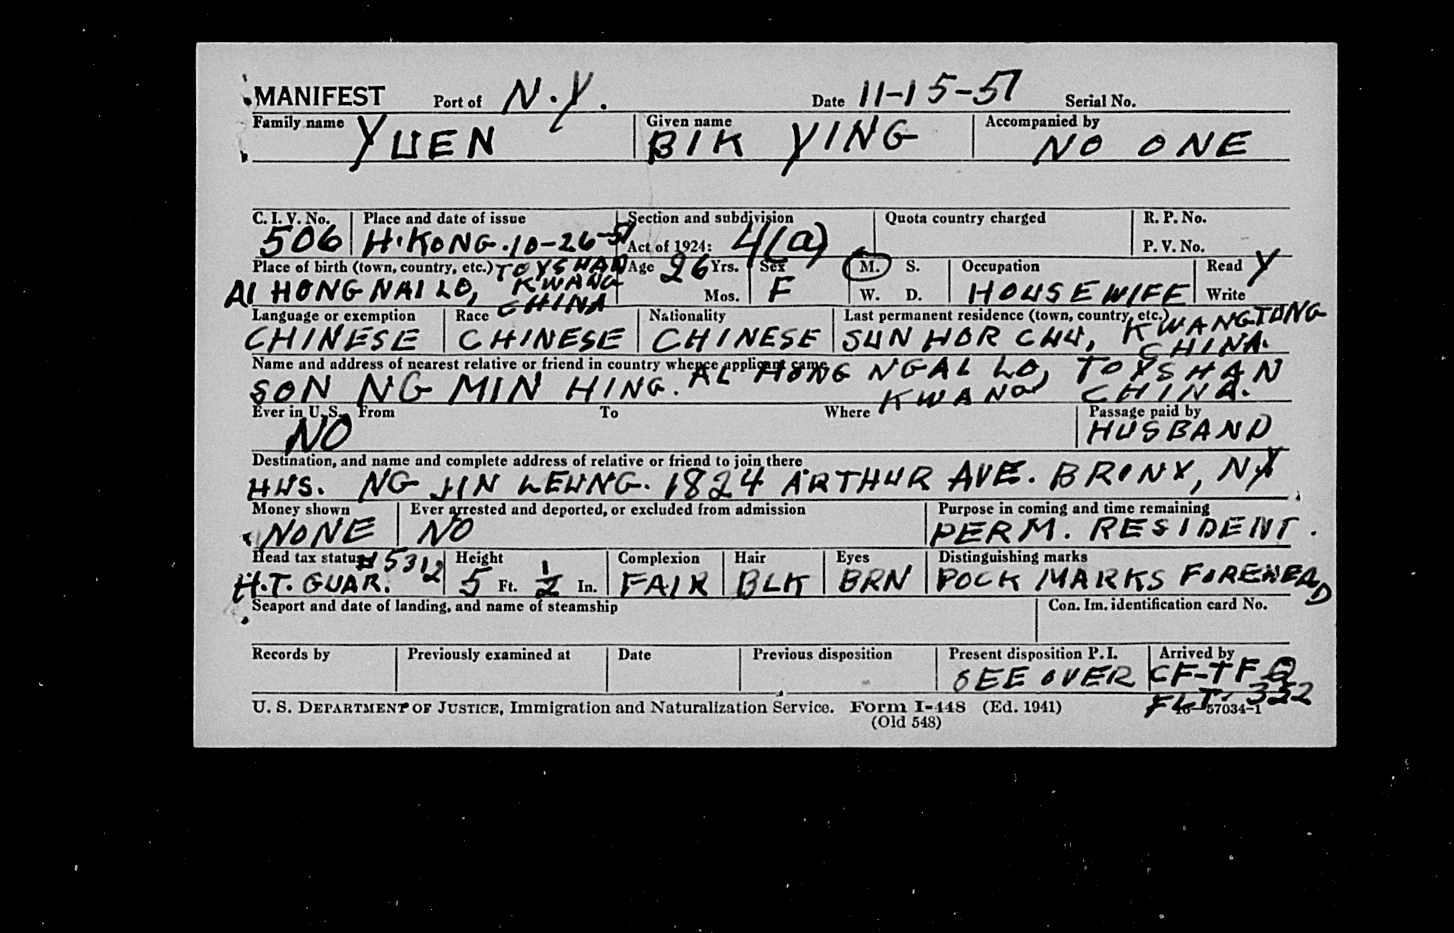 MANIFEST Port of N.Y. Date 11-15-51 Serial No.
Family name YUEN Given name BIK YING Accompanied by NO ONE
C. I. V. No. Place and date of issue Section and subdivision Quota country charged R. P. No.
506 H.KONG.10-26-51 Act of 1924: 4(a) P. V. No.
Place of birth (town, country, etc.) TOYSHAN Age 26 Yrs. Sex M. S. Occupation Read Y
AI HONG NAI LO, KWANG CHINA Mos. F W. D. HOUSEWIFE Write
Language or exemption Race Nationality Last permanent residence (town, country, etc.)
CHINESE CHINESE CHINESE SUN HOR CHU, KWANGTUNG CHINA.
Name and address of nearest relative or friend in country whence applicant came
SON NG MIN HING. AL HONG NGAL LO, TOYSHAN KWANG CHINA.
Ever in U.S. From To Where Passage paid by
NO HUSBAND
Destination, and name and complete address of relative or friend to join there
HUS. NG JIN LEUNG. 1824 ARTHUR AVE. BRONX, NY
Money shown Ever arrested and deported, or excluded from admission Purpose in coming and time remaining
NONE NO PERM. RESIDENT.
Head tax status #5312 Height Complexion Hair Eyes Distinguishing marks
H.T. GUAR. 5 Ft. 1/2 In. FAIR BLK BRN POCK MARKS FOREHEAD
Seaport and date of landing, and name of steamship Con. Im. identification card No.
Records by Previously examined at Date Previous disposition Present disposition P. I. Arrived by
SEE OVER CF-TFQ
FLT. 352
U. S. DEPARTMENT OF JUSTICE, Immigration and Naturalization Service. Form I-448 (Ed. 1941) 16—57034-1
(Old 548)